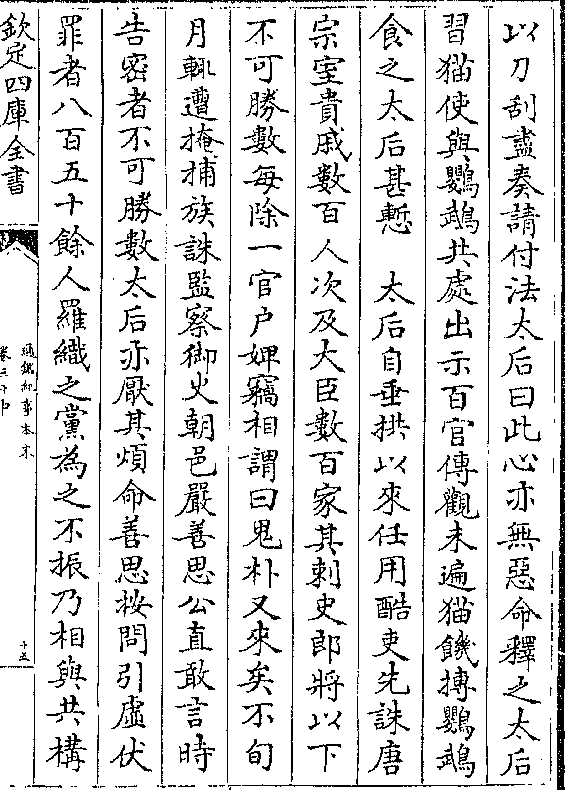 以刀刮盡奏請付法太后曰此心亦無惡命釋之太后
習猫使與鸚鵡共處出示百官傳觀未遍猫饑搏鸚鵡
食之太后甚慙　太后自垂拱以來任用酷吏先誅唐
宗室貴戚數百人次及大臣數百家其刺史郎將以下
不可勝數每除一官户婢竊相謂曰鬼朴又來矣不旬
月輒遭掩捕族誅監察御史朝邑嚴善思公直敢言時
告密者不可勝數太后亦厭其煩命善思按問引虛伏
罪者八百五十餘人羅織之黨為之不振乃相與共構
欽定四庫全書
通鑑紀事本末
十五